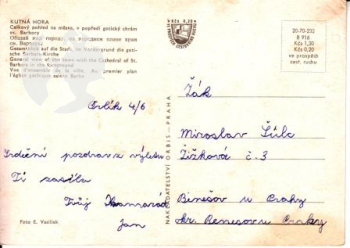 KUTNÁ HORA
Celkový pohled na město, v popředí gotický chrám
sv. Barbory
Gesamtblick auf die Stadt, im Vordergrund die goti-
sche Barbara-Kirche
General view of the town with the Cathedral of St.
Barbara in the foreground
Vue d'ensemble de la ville. Au premier plan
l'église gothique sainte Barbe
Orlík 4/6
Srdečný pozdrav z výletu
Ti zasílá
Tvůj kamarád
Jan
Foto: E. Vasiliak
NAKLADATELSTVÍ ORBIS - PRAHA
Kčs 0,30
20-70-232
B 916
Kčs 1,30
Kčs 0,20
ve prospěch
cest. ruchu
Žák
Miroslav Šulc
Žižkova č. 3
Benešov u Prahy
okr. Benešov u Prahy